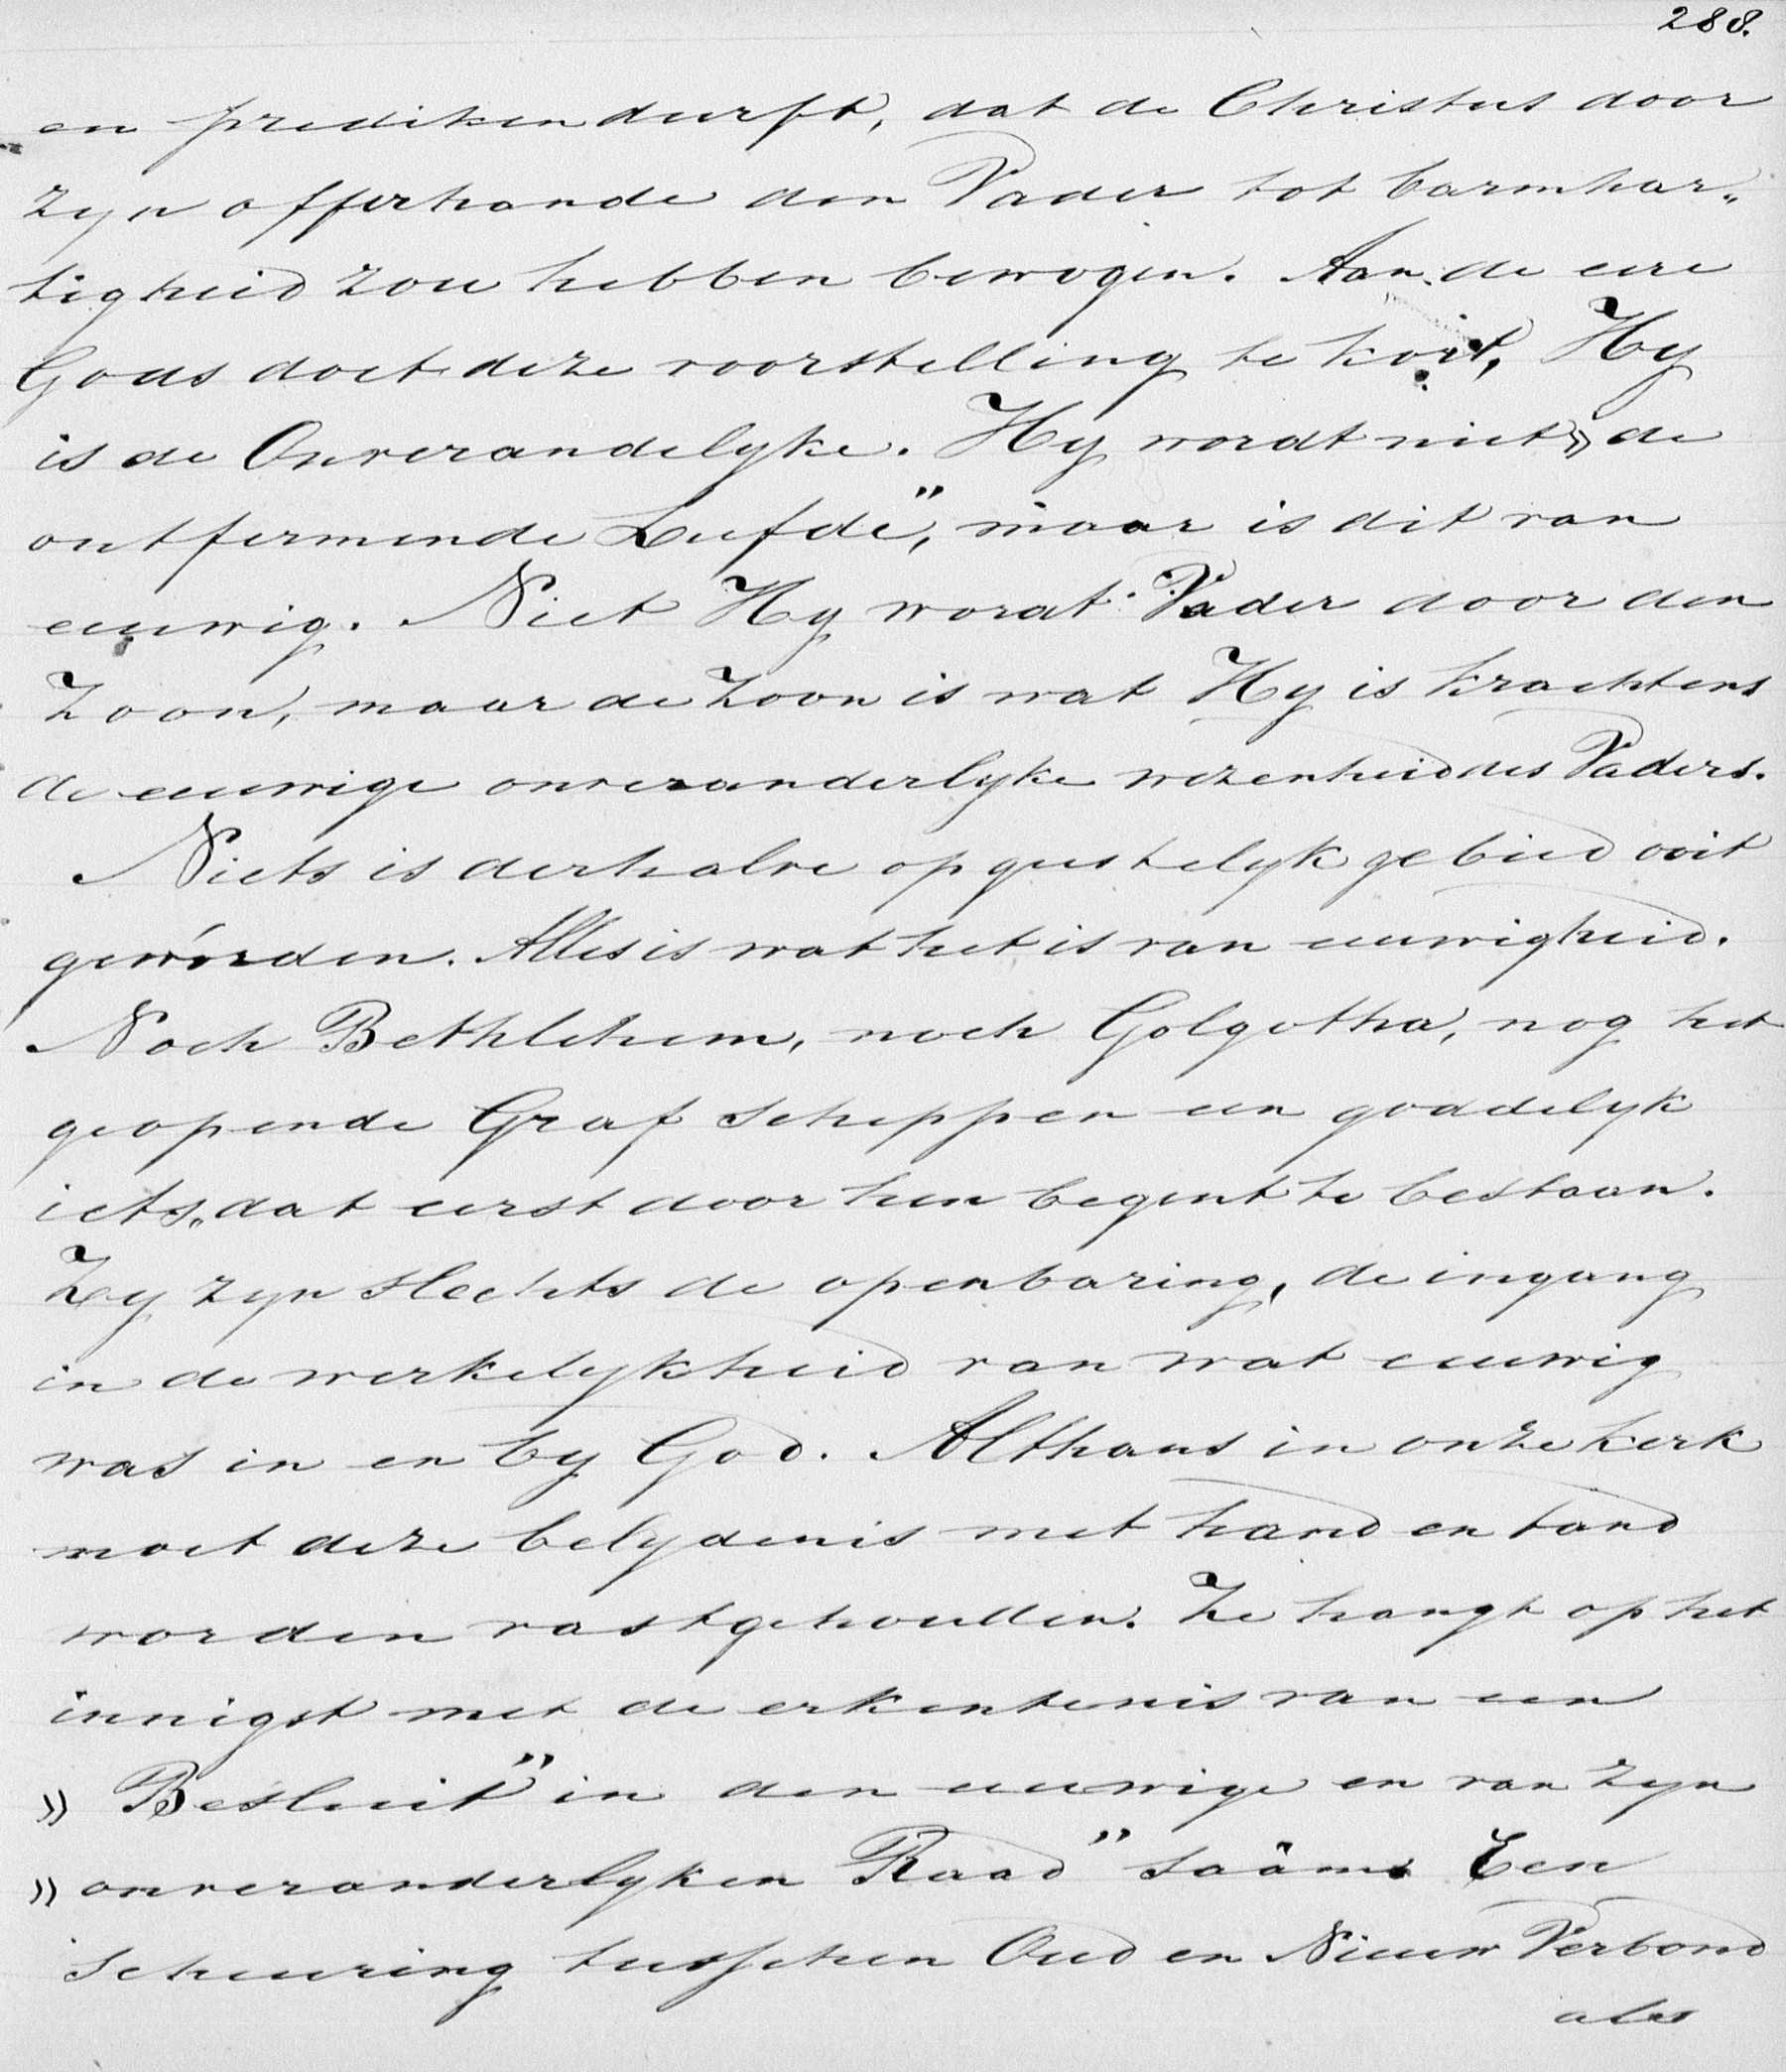 288.
en prediken durft, dat de Christus door
zyn offerhande den Vader tot barmhar„
tigheid zou hebben bewogen. Aan de eere
Gods doet deze voorstelling te kort, Hy
is de Onverandelyke. Hy wordt niet » de
ontfermende Liefde", maar is dit van
eeuwig. Niet Hy wordt Vader door den
Zoon, maar de Zoon is wat Hy is krachtens
de eeuwige onveranderlyke wezenheid des Vaders.
Niets is derhalve op geestelyk gebied ooit
gewórden. Alles is wat het is van eeuwigheid.
Noch Bethlehem, noch Golgotha, nog het
geopende Graf scheppen een goddelyk
iets„ dat eerst door hen begint te bestaan.
Zy zyn slechts de openbaring, de ingang
in de werkelykheid van wat eeuwig
was in en by God. Althans in onze kerk
moet deze belydenis met hand en tand
worden vastgehouden. Ze hangt op het
innigst met de erkentenis van een
» Besluit" in den eeuwige en van zyn
» onveranderlyken Raad" saâm. Een
scheuring tusschen Oud en Nieuw Verbond
als